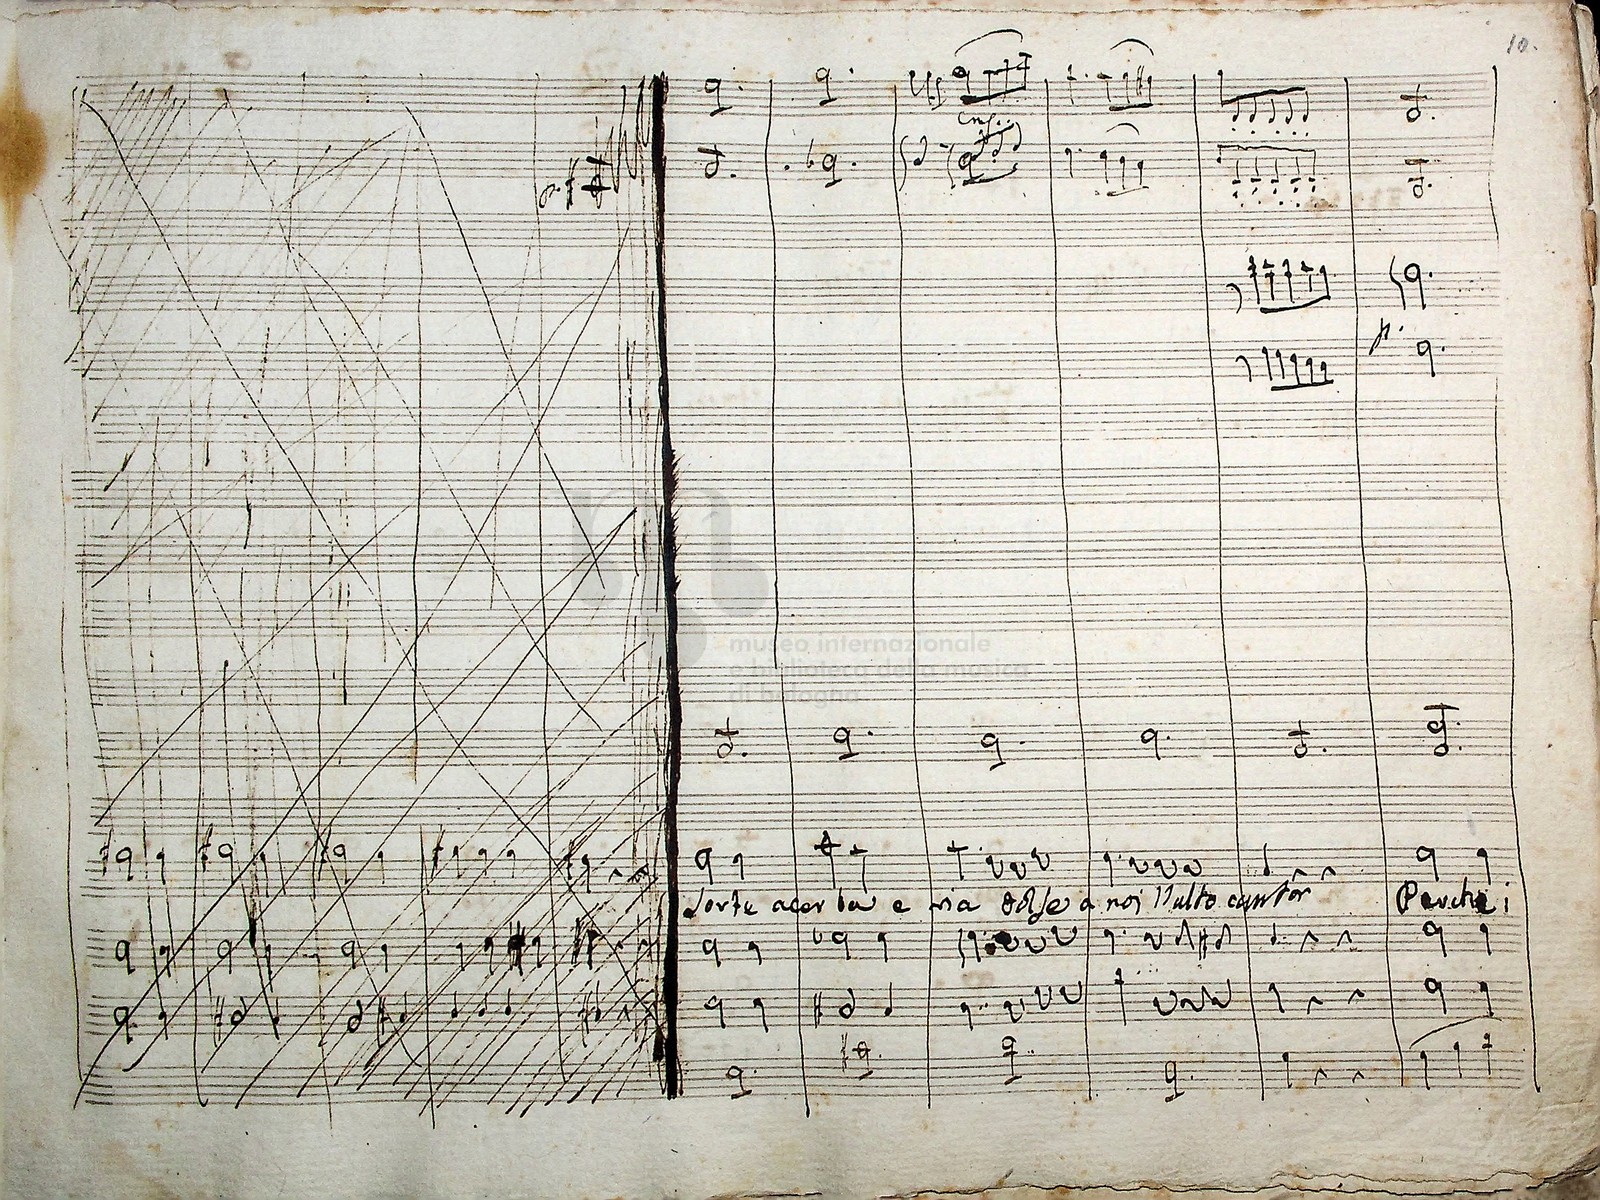 10.
museo internazionale
e biblioteca della musica
di bologna
Sorte acerba e ria tolse a noi l'alto cantor Perchè i